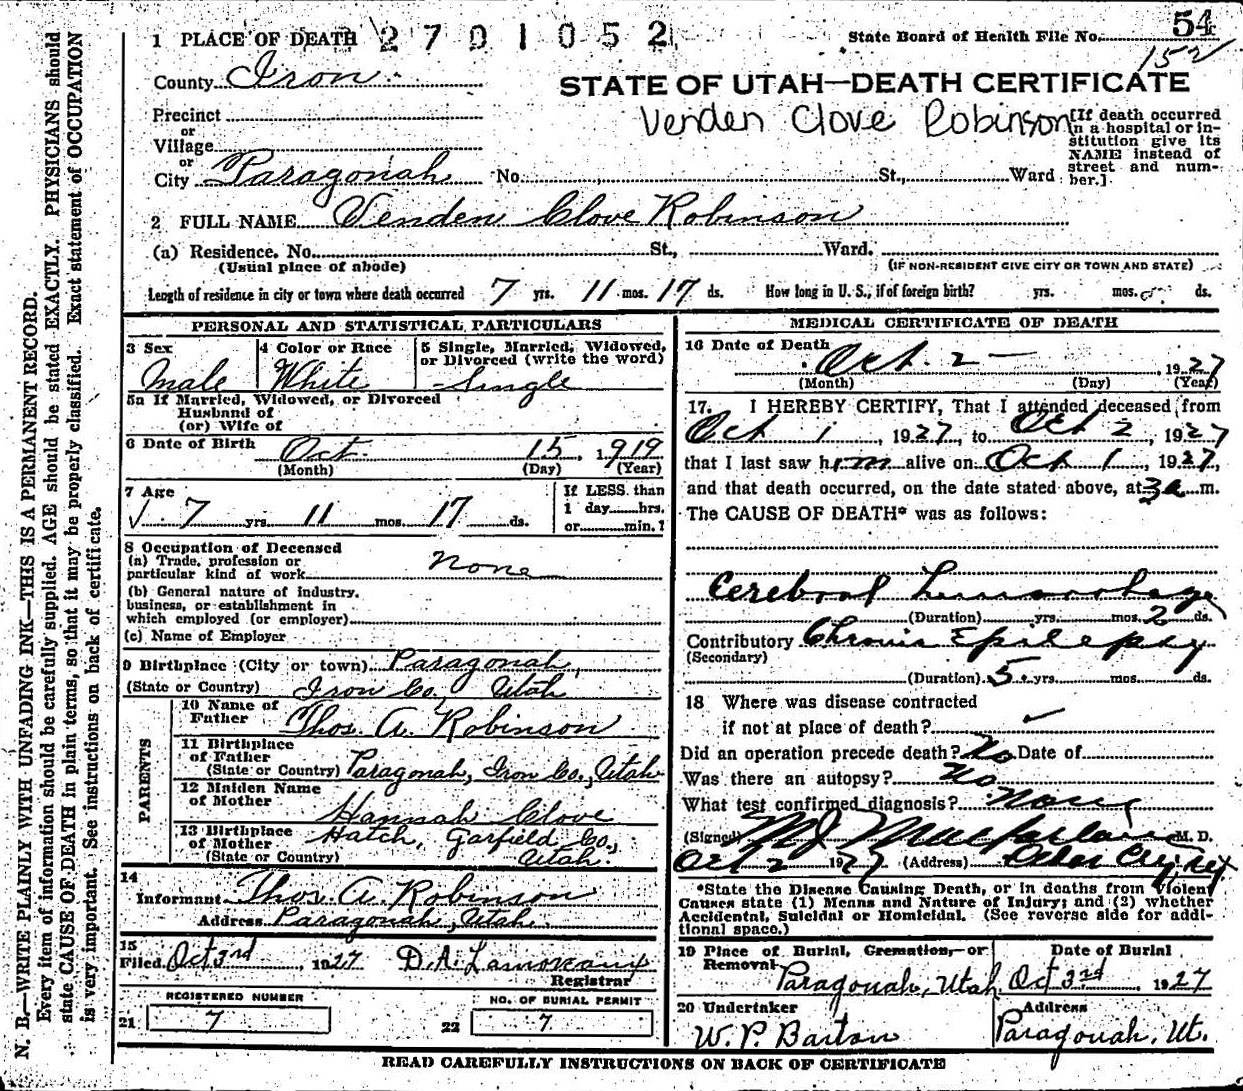 1 PLACE OF DEATH 2701052
State Board of Health File No. 54
152
County Iron
STATE OF UTAH—DEATH CERTIFICATE
Precinct
or
Village
or
City Paragonah No. St., Ward
Venden Clove Robinson
[If death occurred
in a hospital or in-
stitution give its
NAME instead of
street and num-
ber.]
2 FULL NAME Venden Clove Robinson
(a) Residence. No. St., Ward.
(Usual place of abode) (IF NON-RESIDENT GIVE CITY OR TOWN AND STATE)
Length of residence in city or town where death occurred 7 yrs. 11 mos. 17 ds. How long in U. S., if of foreign birth? yrs. mos. ds.
PERSONAL AND STATISTICAL PARTICULARS
3 Sex 4 Color or Race 5 Single, Married, Widowed,
or Divorced (write the word)
Male White Single
5a If Married, Widowed, or Divorced
Husband of
(or) Wife of
6 Date of Birth Oct. 15, 1919
(Month) (Day) (Year)
7 Age
7 yrs. 11 mos. 17 ds.
If LESS than
1 day hrs.
or min.?
8 Occupation of Deceased
(a) Trade, profession or
particular kind of work None
(b) General nature of industry,
business, or establishment in
which employed (or employer)
(c) Name of Employer
9 Birthplace (City or town) Paragonah,
(State or Country) Iron Co., Utah
PARENTS
10 Name of
Father Thos. A. Robinson
11 Birthplace
of Father
(State or Country) Paragonah, Iron Co., Utah
12 Maiden Name
of Mother Hannah Clove
13 Birthplace
of Mother
(State or Country) Hatch, Garfield Co.,
Utah.
14
Informant Thos. A. Robinson
Address Paragonah, Utah.
15
Filed Oct 3rd, 1927 D. A. Lamoreaux
Registrar
REGISTERED NUMBER NO. OF BURIAL PERMIT
21 7 22 7
MEDICAL CERTIFICATE OF DEATH
16 Date of Death
Oct. 2 — , 1927
(Month) (Day) (Year)
17. I HEREBY CERTIFY, That I attended deceased from
Oct 1, 1927, to Oct 2, 1927
that I last saw him alive on Oct 1, 1927,
and that death occurred, on the date stated above, at 3a m.
The CAUSE OF DEATH* was as follows:
Cerebral hemorrhage
(Duration) yrs. mos. 2 ds.
Contributory Chronic Epilepsy
(Secondary)
(Duration) 5 yrs. mos. ds.
18 Where was disease contracted
if not at place of death?
Did an operation precede death? No Date of
Was there an autopsy? No
What test confirmed diagnosis? None
(Signed) M J Macfarlane M. D.
Oct 2 1927 (Address) Cedar City, Ut
*State the Disease Causing Death, or in deaths from Violent
Causes state (1) Means and Nature of Injury; and (2) whether
Accidental, Suicidal or Homicidal. (See reverse side for addi-
tional space.)
19 Place of Burial, Cremation, or
Removal Date of Burial
Paragonah, Utah. Oct 3rd, 1927
20 Undertaker Address
W. P. Barton Paragonah, Ut.
READ CAREFULLY INSTRUCTIONS ON BACK OF CERTIFICATE
N. B.—WRITE PLAINLY WITH UNFADING INK—THIS IS A PERMANENT RECORD.
Every item of information should be carefully supplied. AGE should be stated EXACTLY. PHYSICIANS should
state CAUSE OF DEATH in plain terms, so that it may be properly classified. Exact statement of OCCUPATION
is very important. See instructions on back of certificate.